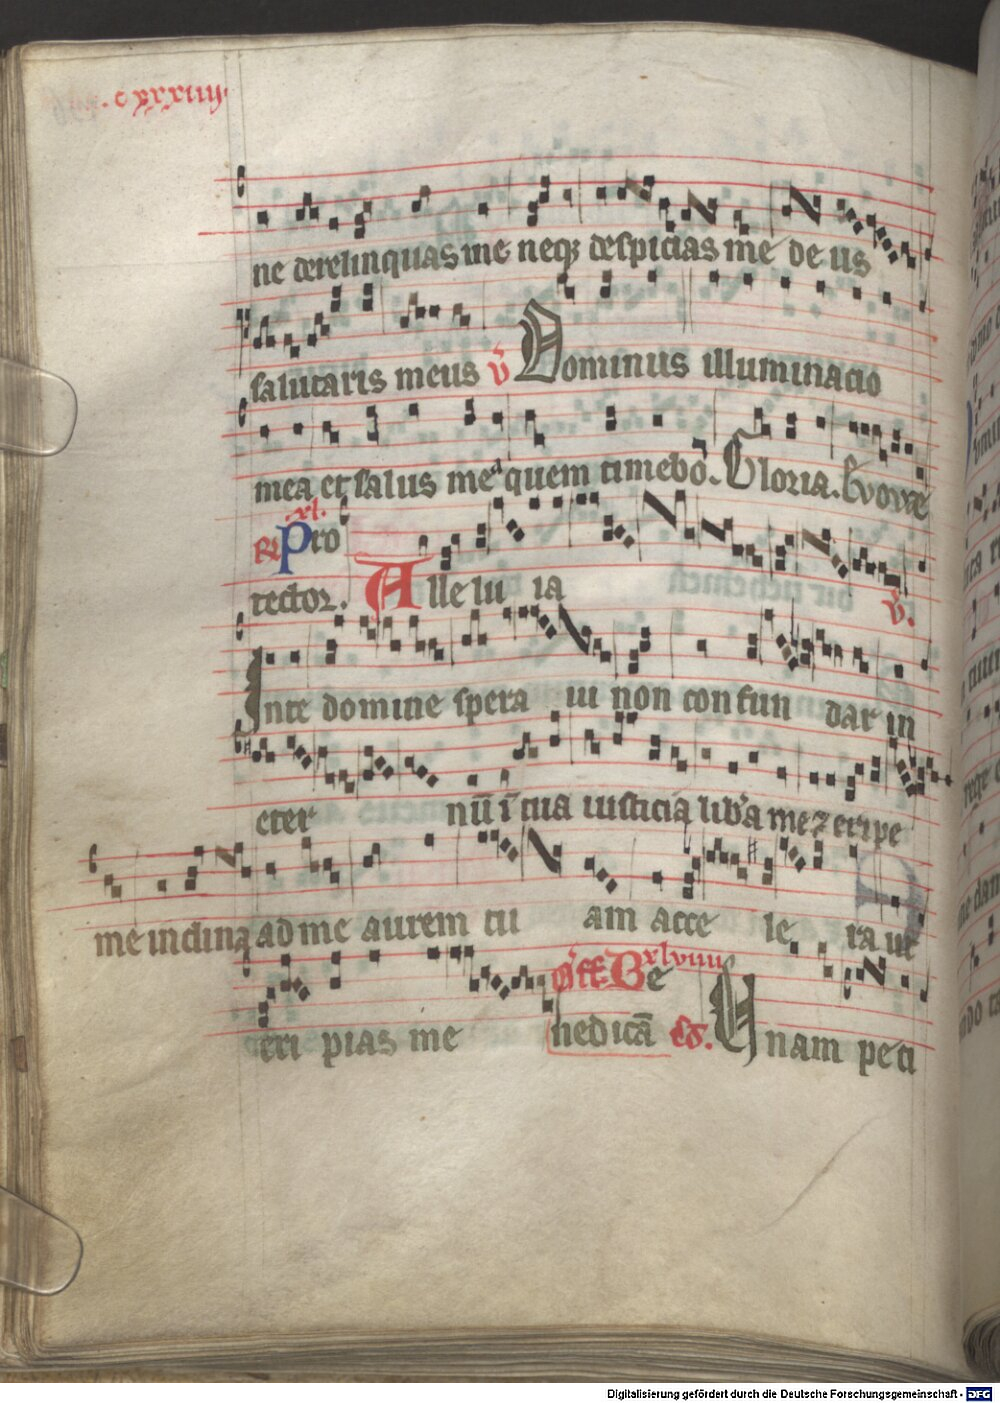 . cxxxiiij.
ne derelinquas me neqʒ despicias me de us
salutaris meus v̄ Dominus illuminacio
mea et salus mea quem timebo. Gloria. Evovae
xl.
R Pro
tector. Alle lu ia v̄.
Inte domine spera ui non confun dar in
eter nū ī tua iusticia lib̄a me ⁊ eripe
me inclina ad me aurem tu am acce le ra ut
xlviiii
Off. Be
eri pias me nedicā Co. Unam peci
Digitalisierung gefördert durch die Deutsche Forschungsgemeinschaft - DFG